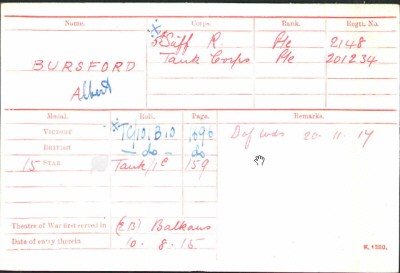 Name. Corps. Rank. Regtl. No.
Suff R. Pte 2148
BURSFORD Tank Corps Pte 201234
Albert
Medal. Roll. Page. Remarks.
VICTORY TC/101 B10 1090 D of W 20.11.17
BRITISH - do - do
15 STAR Tank/1c 159
Theatre of War first served in (2B) Balkans
Date of entry therein 10. 8. 15
K. 1380.